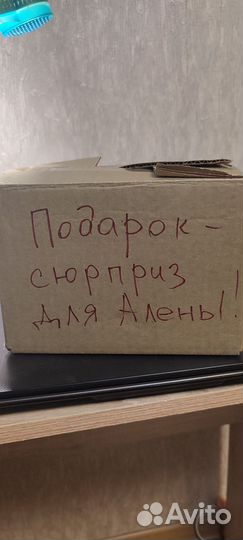 Подарок-
сюрприз
для Алены!
Avito